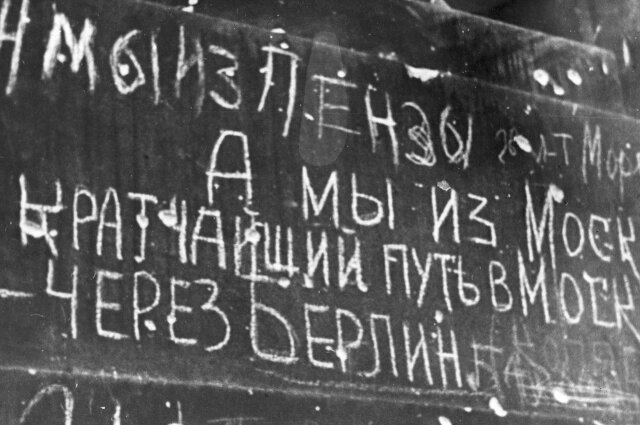 МЫ ИЗ ПЕНЗЫ
А МЫ ИЗ МОСК
КРАТЧАЙЩИЙ ПУТЬ В МОСК
— ЧЕРЕЗ БЕРЛИН